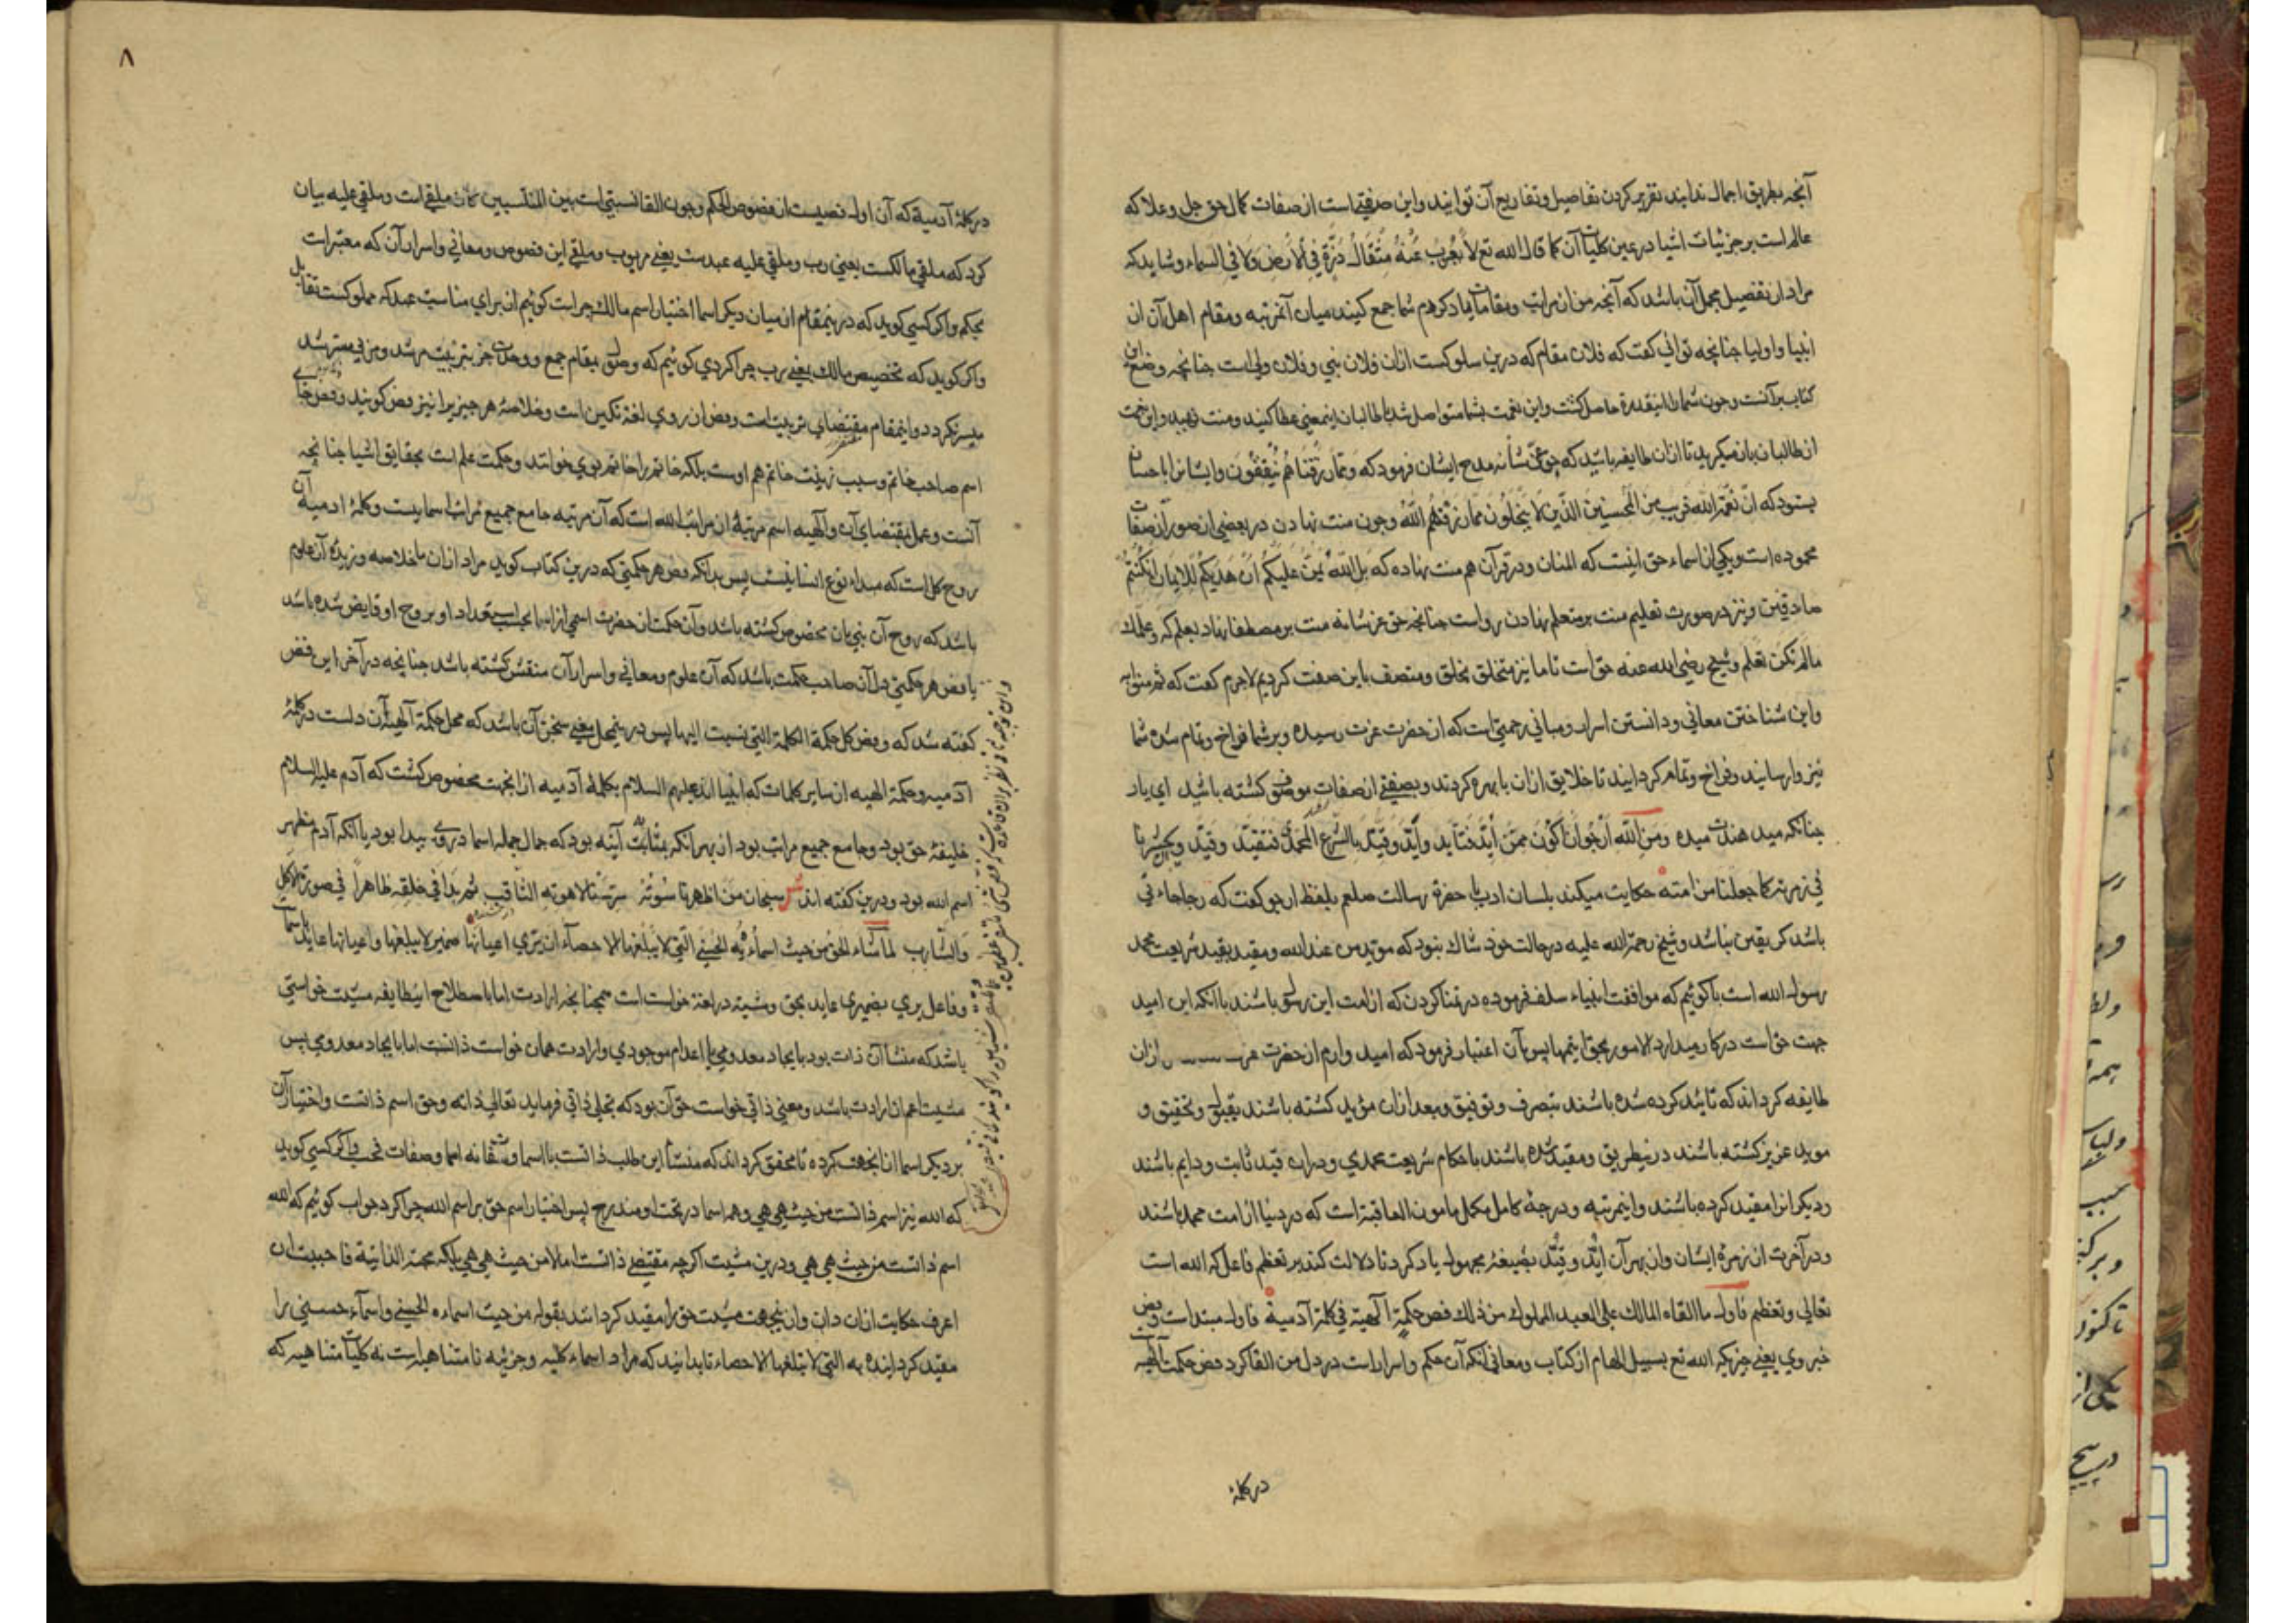 آنچه بطریق اجمال ندایند تقریر کردن تفاصیل و تفاریح آن توانید و این صفتی است از صفات کمال حق جل و علا که
عالم است بر جزئیات اشیا در عین کلیات آن کما قال الله تع لا یعزب عنه مثقال ذرة فی الارض ولا فی السماء و شاید که
مراد از تفصیل مجمل آن باشد که آنچه من از مراتب و مقامات یاد کردم شما جمع کنید میان آنمرتبه و مقام اهل آن از
انبیا و اولیا چنانچه توانی گفت که فلان مقام که درین سلوکست ازان فلان نبی و فلان ولی است چنانچه وضع این
کتاب برآنست و چون شما را اینقدرة حاصل گشت و این نعمت بشما متواصل شد با طالبان اینمعنی عطا کنید و منت نهید و این نعمت
از طالبان باز مگیرید تا ازان طایفه باشید که حق عز شأنه مدح ایشان فرمود که ومما رزقناهم ینفقون و ایشانرا باحسان
بستود که ان رحمة الله قریب من المحسنین الذین لا یبخلون مما رزقهم الله و چون منت نهادن در بعضی از صور از صفات
محموده است و یکی از اسماء حق اینست که المنان و در قرآن هم منت نهاده که بل الله یمن علیکم ان هدیکم للایمان ان کنتم
صادقین و نیز در صورت تعلیم منت بر متعلم نهادن رواست چنانچه حق عز شانه منت بر مصطفا نهاد بعلم که وعلمک
مالم تکن تعلم و شیخ رضی الله عنه حق است تا ما نیز متخلق بخلق و متصف باین صفت کردیم لاجرم گفت که ثم منوا به
و این شناختن معانی و دانستن اسرار و مبانی رحمتی است که از حضرت عزت رسیده و بر شما فراخ و تمام شده شما
نیز وارسانید و فراخ و تمام کردانید تا خلایق ازان با بهره کردند و بصفتی از صفات موصوف کشته باشید ای یار
چنانکه میدهندت میده ومن الله ارجو ان اکون ممن اید فتاید واید وقید بالشرع المحمدی فتقید وقید وحشرنا
فی زمرته کما جعلنا من امته حکایت میکند بلسان ادب با حضرة رسالت صلعم بلفظ ارجو گفت که رجا جاءنی
باشد کی یقین نباشد و شیخ رحمة الله علیه در حالت خود شاک نبود که موید من عند الله و مقید بقید شریعت محمد
رسول الله است باکوئیم که موافقت انبیاء سلف فرموده در تمنا کردن که از امت این رسول باشند با آنکه این امید
جهت خواست در کار میدارد الامور بحق ایتمها پس بآن اعتبار فرمود که امید وارم از حضرت عزت ازان
طایفه کرداند که تائید کرده شده باشند بتصرف و توفیق و بعد ازان موید کشته باشند بقبول و تحقیق و
موید عزیز کشته باشند درین طریق و مقید شده باشند باحکام شریعت محمدی و دران قید ثابت و دایم باشند
و دیکرانرا مقید کرده باشند و اینمرتبه و درجهٔ کامل مکمل مامون العاقبة است که در دنیا از امت محمد باشند
و در آخرت از زمرهٔ ایشان و از بهر آن اید و قید بصیغهٔ مجهول یاد کرد تا دلالت کند بر تعظیم فاعل که الله است
تعالی و تعظم فاول ما القاه المالک علی العبد المملوک من ذلک فص حکمة آلهیة فی کلمة آدمیة فاول مبتدا است و فص
خبر وی یعنی چیزیکه الله تع بسبیل الهام از کتاب و معانی آنکه آن حکم و اسرار است در دل من القا کرد فص حکمت آلهیه
در کلمهٔ
۸
در کلمهٔ آدمیة که آن اول فصیست از فصوص الحکم و چون القا نسبتی است بین المنتسبین کان ملقی است و ملقی علیه بیان
کرد که ملقی مالکست یعنی رب و ملقی علیه عبدست یعنی مربوب و ملقی این فصوص و معانی و اسرار آن که معتبر است
بحکم و اکر کسی کوید که در ینمقام از میان دیکر اسما اختیار اسم مالک چراست کوئیم از برای مناسبت عبد که مملوکست تقابل
و اکر کوید که تخصیص مالک یعنی برب چرا کردی کوئیم که وصول بمقام جمع و وحدت جز بتربیت مرشد و مربی مسترشد
میسر نکردد و اینمقام مقتضای تربیت است و فص از روی لغة نکین است و خلاصهٔ هر چیز یرا نیز فص کویند و فص خاتم
اسم صاحب خاتم و سبب زینت خاتم هم اوست بلکه خاتم را خاتم بوی خوانند و حکمت علم است بحقایق اشیا چنانچه آن
آنست و عمل بمقتضای آن و آلهیه اسم مرتبهٔ از مراتب الله است که آن مرتبه جامع جمیع مراتب اسمایست و کلمهٔ ادمیه
روح کلی است که مبداء نوع انسانیست پس بدانکه فص هر حکمتی که درین کتاب کوید مراد ازان ما خلاصه و زبدهٔ آن علوم
باشد که روح آن نبی بان مخصوص کشته باشد و آن حکمت از حضرت اسمی از اسما بحسب استعداد او بر روح او فایض شده باشد
یا فص هر حکمتی دل آن صاحب حکمت باشد که آن علوم و معانی و اسرار آن منقش کشته باشد چنانچه در آخر این فص
کفته شد که وفص کل حکمة الکلمة التی نسبت الیها پس درینمحل معنی سخن آن باشد که محل حکمة آلهیه آن دلست در کلمهٔ
آدمیه و حکمة الهیه از سایر کلمات که انبیا اند علیهم السلام بکلمهٔ آدمیه از انجهت مخصوص کشت که آدم علیه السلام
خلیفهٔ حق بود و جامع جمیع مراتب بود از بهر آنکه بمثابت آینه بود که جمال جمله اسما دروی پیدا بود یا آنکه آدم مظهر
اسم الله بود و درین کفته اند شعر سبحان من اظهر ناسوته سر سنا لاهوته الثاقب ثم بدا فی خلقه ظاهراً فی صورة الاکل
والشارب لما شاء الحق من حیث اسماءه الحسنی التی لا یبلغها الاحصاء ان یری اعیانها ضمیر لا یبلغها و اعیانها عاید باسما
و فاعل یری بضمیری عاید بحق و مشیة در لغة خواست است همچنانچه ارادت اما باصطلاح اینطایفه مشیت خواستی
باشد که منشأ آن ذات بود بایجاد معدومی یا اعدام موجودی و ارادت همان خواست ذاتست اما بایجاد معدومی پس
مشیت اعم از ارادت باشد و معنی ذاتی خواست حق آن بود که تجلی ذاتی فرماید تعالی ذاته و حق اسم ذاتست و اختیار آن
بر دیکر اسما از انجهت کرده تا محقق کرداند که منشأ این طلب ذاتست با اسما و شقانه اسما و صفات فحسب و اکر کسی کوید
که الله نیز اسم ذاتست من حیث هی هی و همه اسما در تحت او مندرج پس اختیار اسم حق بر اسم الله چرا کرد جواب کوئیم که الله
اسم ذاتست من حیث هی هی و درین مشیت اکرچه مقتضی ذاتست اما لا من حیث هی هی بلکه محبة الذاتیة فاحببت ان
اعرف حکایت ازان دان و ازینجهت مشیت حق را مقید کردانید بقوله من حیث اسماءه الحسنی و اسماء حسنی را
مقید کردانیده به التی لا یبلغها الاحصاء تا بدانید که مراد اسماء کلیه و جزئیه نا متناهیه است نه کلیات متناهیه که